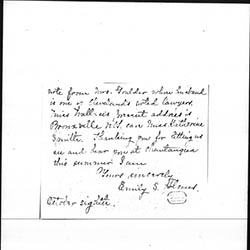 note from Mrs. Goulder whose husband
is one of Cleveland's noted lawyers.
Miss Wallace's present address is
Bronxville N.Y. care Miss Katherine
Smith. Thanking you for letting us
see and hear you at Chautauqua
this summer I am
Yours sincerely
Emily S.
October eighth.